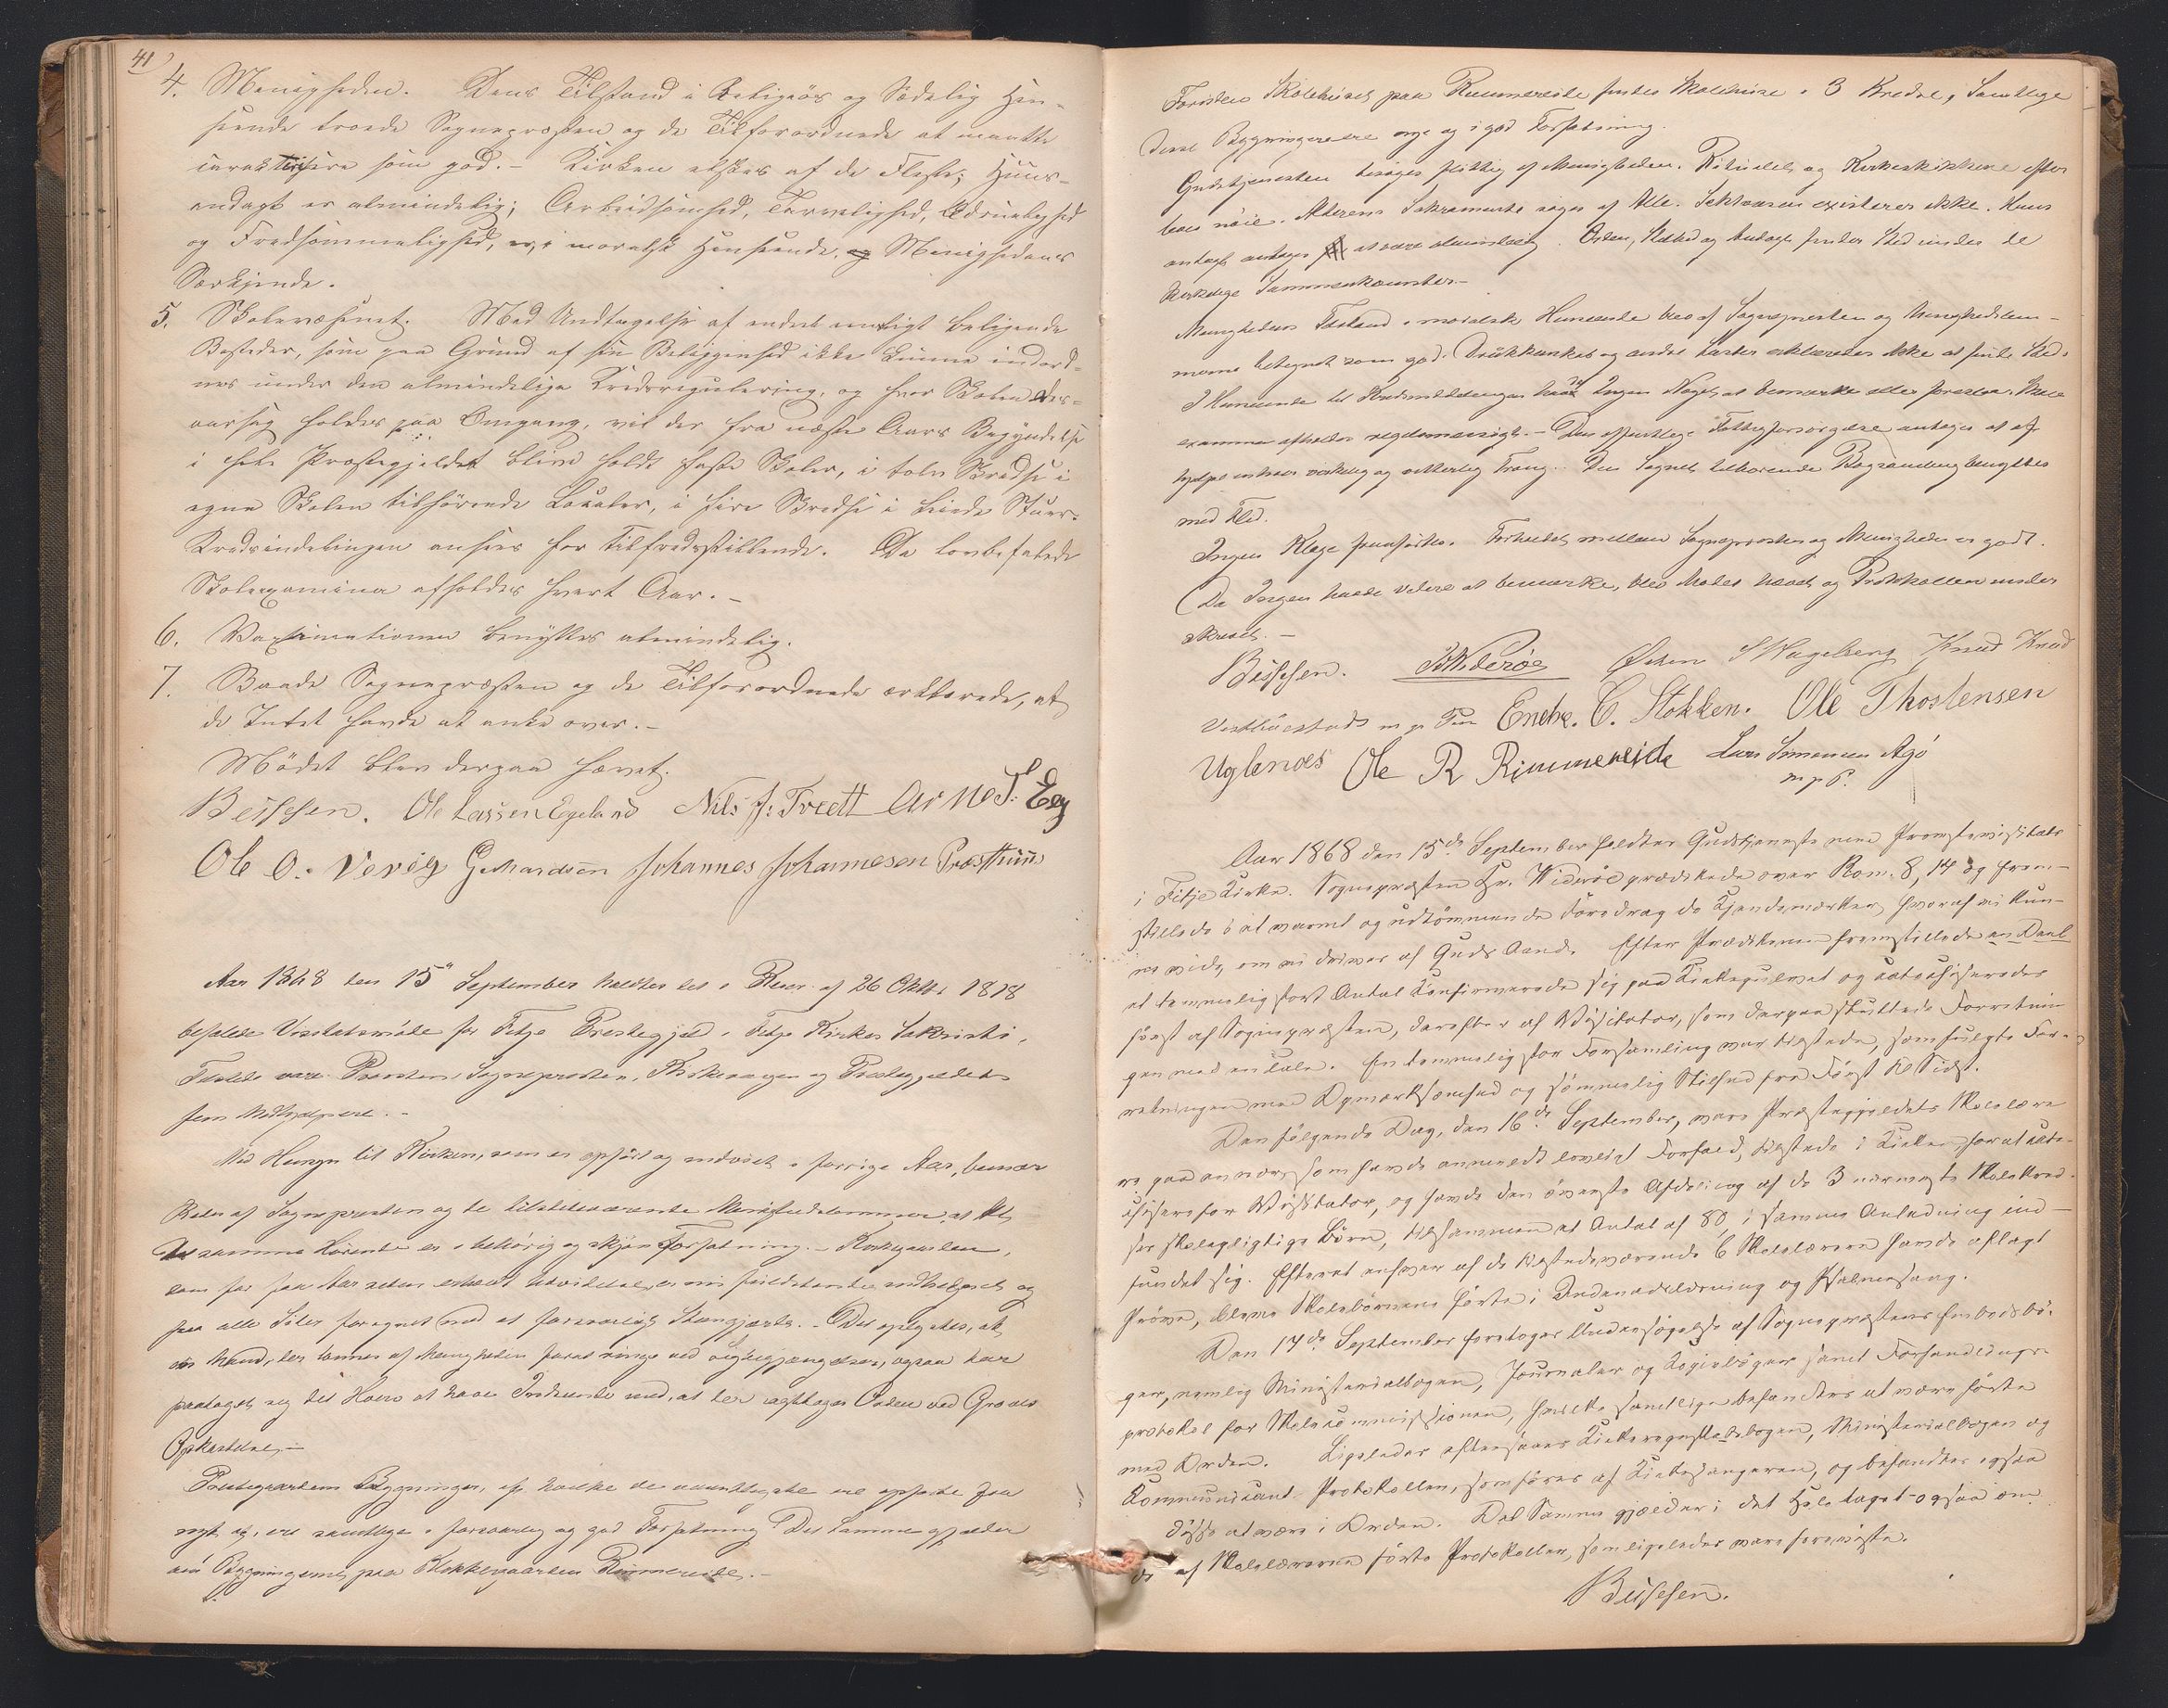 41
4. Menigheden. Dens Tilstand i Religiøs og Sædelig Hen-
seende troede Sognepræsten og de Tilforordnede at maatte
karakterisere som god. – Kirken elskes af de Fleste; Huus-
andagt er almindelig; Arbeidsomhed, Tarvelighed, Ædruelighed
og Fredsommelighed, er, i moralsk Henseende, Menighedens
Særkjende.
5. Skolevæsenet. Med Undtagelse af endeel enligt beliggende
Bosteder, som paa Grund af sin Beliggenhed ikke kunne indord-
nes under den almindelige Kredsregulering, og hvor Skolen des-
aarsag holdes paa Omgang, vil der fra næste Aars Begyndelse
i hele Præstegjeldet blive holdt faste Skoler, i tolv Kredse i
egne Skolen tilhørende Localer, i fire Kredse i leiede Stuer.
Kredsindelingen ansees for tilfredsstillende. De lovbefalede
Skolexamina afholdes hvert Aar. –
6. Vaxinationen benyttes almindelig.
7. Baade Sognepræsten og de Tilforordnede erklærede, at
de Intet havde at anke over. –
Mødet blev derpaa hævet.
Beissen. Ole Lassen Egeland Nils J: Tvett Arne T. Eeg
Ole O. Vevig Johannes Johannesen Præsthuus
Aar 1868 den 15de September holdtes det i Rescr. af 26 Oktbr 1818
befalede Visitatsmøde for Fitje Præstegjeld i Fitje Kirkes Sakristi.
Tilstede vare Provsten, Sognepræsten, Kirkesanger og Præstegjeldets
fem Medhjælpere. –
Med Hensyn til Kirken, som er opført og indviet i forrige Aar, bemær
kedes af Sognepræsten og de tilstedeværende Menighedslemmer, at Alt
det samme hørende er i behørig og skjøn Forfatning. – Kirkegaarden,
som for faa Aar siden erholdt Udvidelse, er nu fuldstændig indhegnet og
paa alle Sider foregnet med et forsvarligt Steengjærde. – Det oplystes, at
en Mand, der lønnes af Menigheden forat ringe ved Liigbegjængelser, ogsaa har
paataget sig det Hverv at have Indseende med, at der iagttages Orden ved Graves
Opkastelse. –
Præstegaardens Bygninger, af hvilke de uundtagelige ere opførte paa
nyt, ere samtlige i forsvarlig og god Forfatning. Det samme gjælder
om Bygningerne paa Klokkergaarden Rimmereide. –
Foruden Skolehuset paa Rimmereide findes Skolehuse i 3 Kredse, Samtlige
disse Bygninger ere nye og i god Forfatning.
Gudstjenesten besøges flittig af Menigheden. Ritualet og Kirkeskikkene efter
leves nøie. Alterens Sakramente søges af Alle. Sektvæsen existerer ikke. Huus
andagt antages at være almindelig. Orden, Stilhed og Andagt finder Sted under de
kirkelige Sammenkomster. –
Menighedens Tilstand i moralsk Henseende blev af Sognepræsten og Menighedslem-
merne betegnet som god. Drukkenskab og andre Laster erklæredes ikke at finde Sted.
I Henseende til Kredsinddelingen havde Ingen Noget at bemærke eller foreslaa. Skole
examen afholdes regelmæssigt. – Den offentlige Fattigforsørgelse antages at af-
hjælpe enhver virkelig og vitterlig Trang. Den Sognet tilhørende Bogsamling benyttes
med Flid.
Ingen Klage fremførtes. Forholdet mellem Sognepræsten og Menigheden er godt.
Da Ingen havde videre at bemærke, blev Mødet hævet og Protokollen under
skrevet. –
Beissen. Widerøe Østen S Vageberg Knud Knud
m. p. Pen Endre. C. Stokken. Ole Thostensen
Uglenæs Ole R Rimmereide Lars Simensen Agø
m p P.
Aar 1868 den 15de September holdtes Gudstjeneste med Provstevisitats
i Fitje Kirke. Sognepræsten Hr. Widerøe prædikede over Rom. 8, 14 og frem-
stillede i et varmt og udtømmende Foredrag de Kjendemærker, hvoraf vi kun-
ne vide, om vi drives af Guds Aand. Efter Prædikenen fremstillede en Deel
et temmelig stort Antal Konfirmerede sig paa Kirkegulvet og catechiseredes
først af Sognepræsten, derefter af Visitator, som derpaa sluttede Forretnin
gen med en Tale. En temmelig stor Forsamling var tilstede, som fulgte For-
retningen med Opmærksomhed og sømmelig Stilhed fra Først til Sidst.
Den følgende Dag, den 16de September, vare Præstegjeldets Skolelære
re paa en nær, som havde anmeldt lovligt Forfald, tilstede i Kirken for at kate-
chisere for Visitator, og havde den øverste Afdeling af de 3 nærmeste Skolekred-
ses skolepligtige Børn, tilsammen et Antal af 80, i samme Anledning ind-
fundet sig. Efterat enhver af de tilstedeværende 6 Skolelærere havde aflagt
Prøve, bleve Skolebørnene hørte i Indenadslæsning og Psalmesang.
Den 17de September foretoges Undersøgelse af Sognepræstens Embedsbø-
ger, nemlig Ministerialbogen, Journaler og Kopiebøger samt Forhandlings-
protokol for Skolekommissionen, hvilke samtlige befandtes at være førte
med Orden. Ligeledes eftersaaes Kirkeregnskabsbogen, Ministerialbogen og
Kommunicant-Protokollen, som føres af Kirkesangeren, og befandtes ogsaa
disse at være i Orden. Det Samme gjælder i det Hele taget ogsaa om
de af Skolelærerne førte Protokoller, som ligeledes vare foreviste.
Beissen.